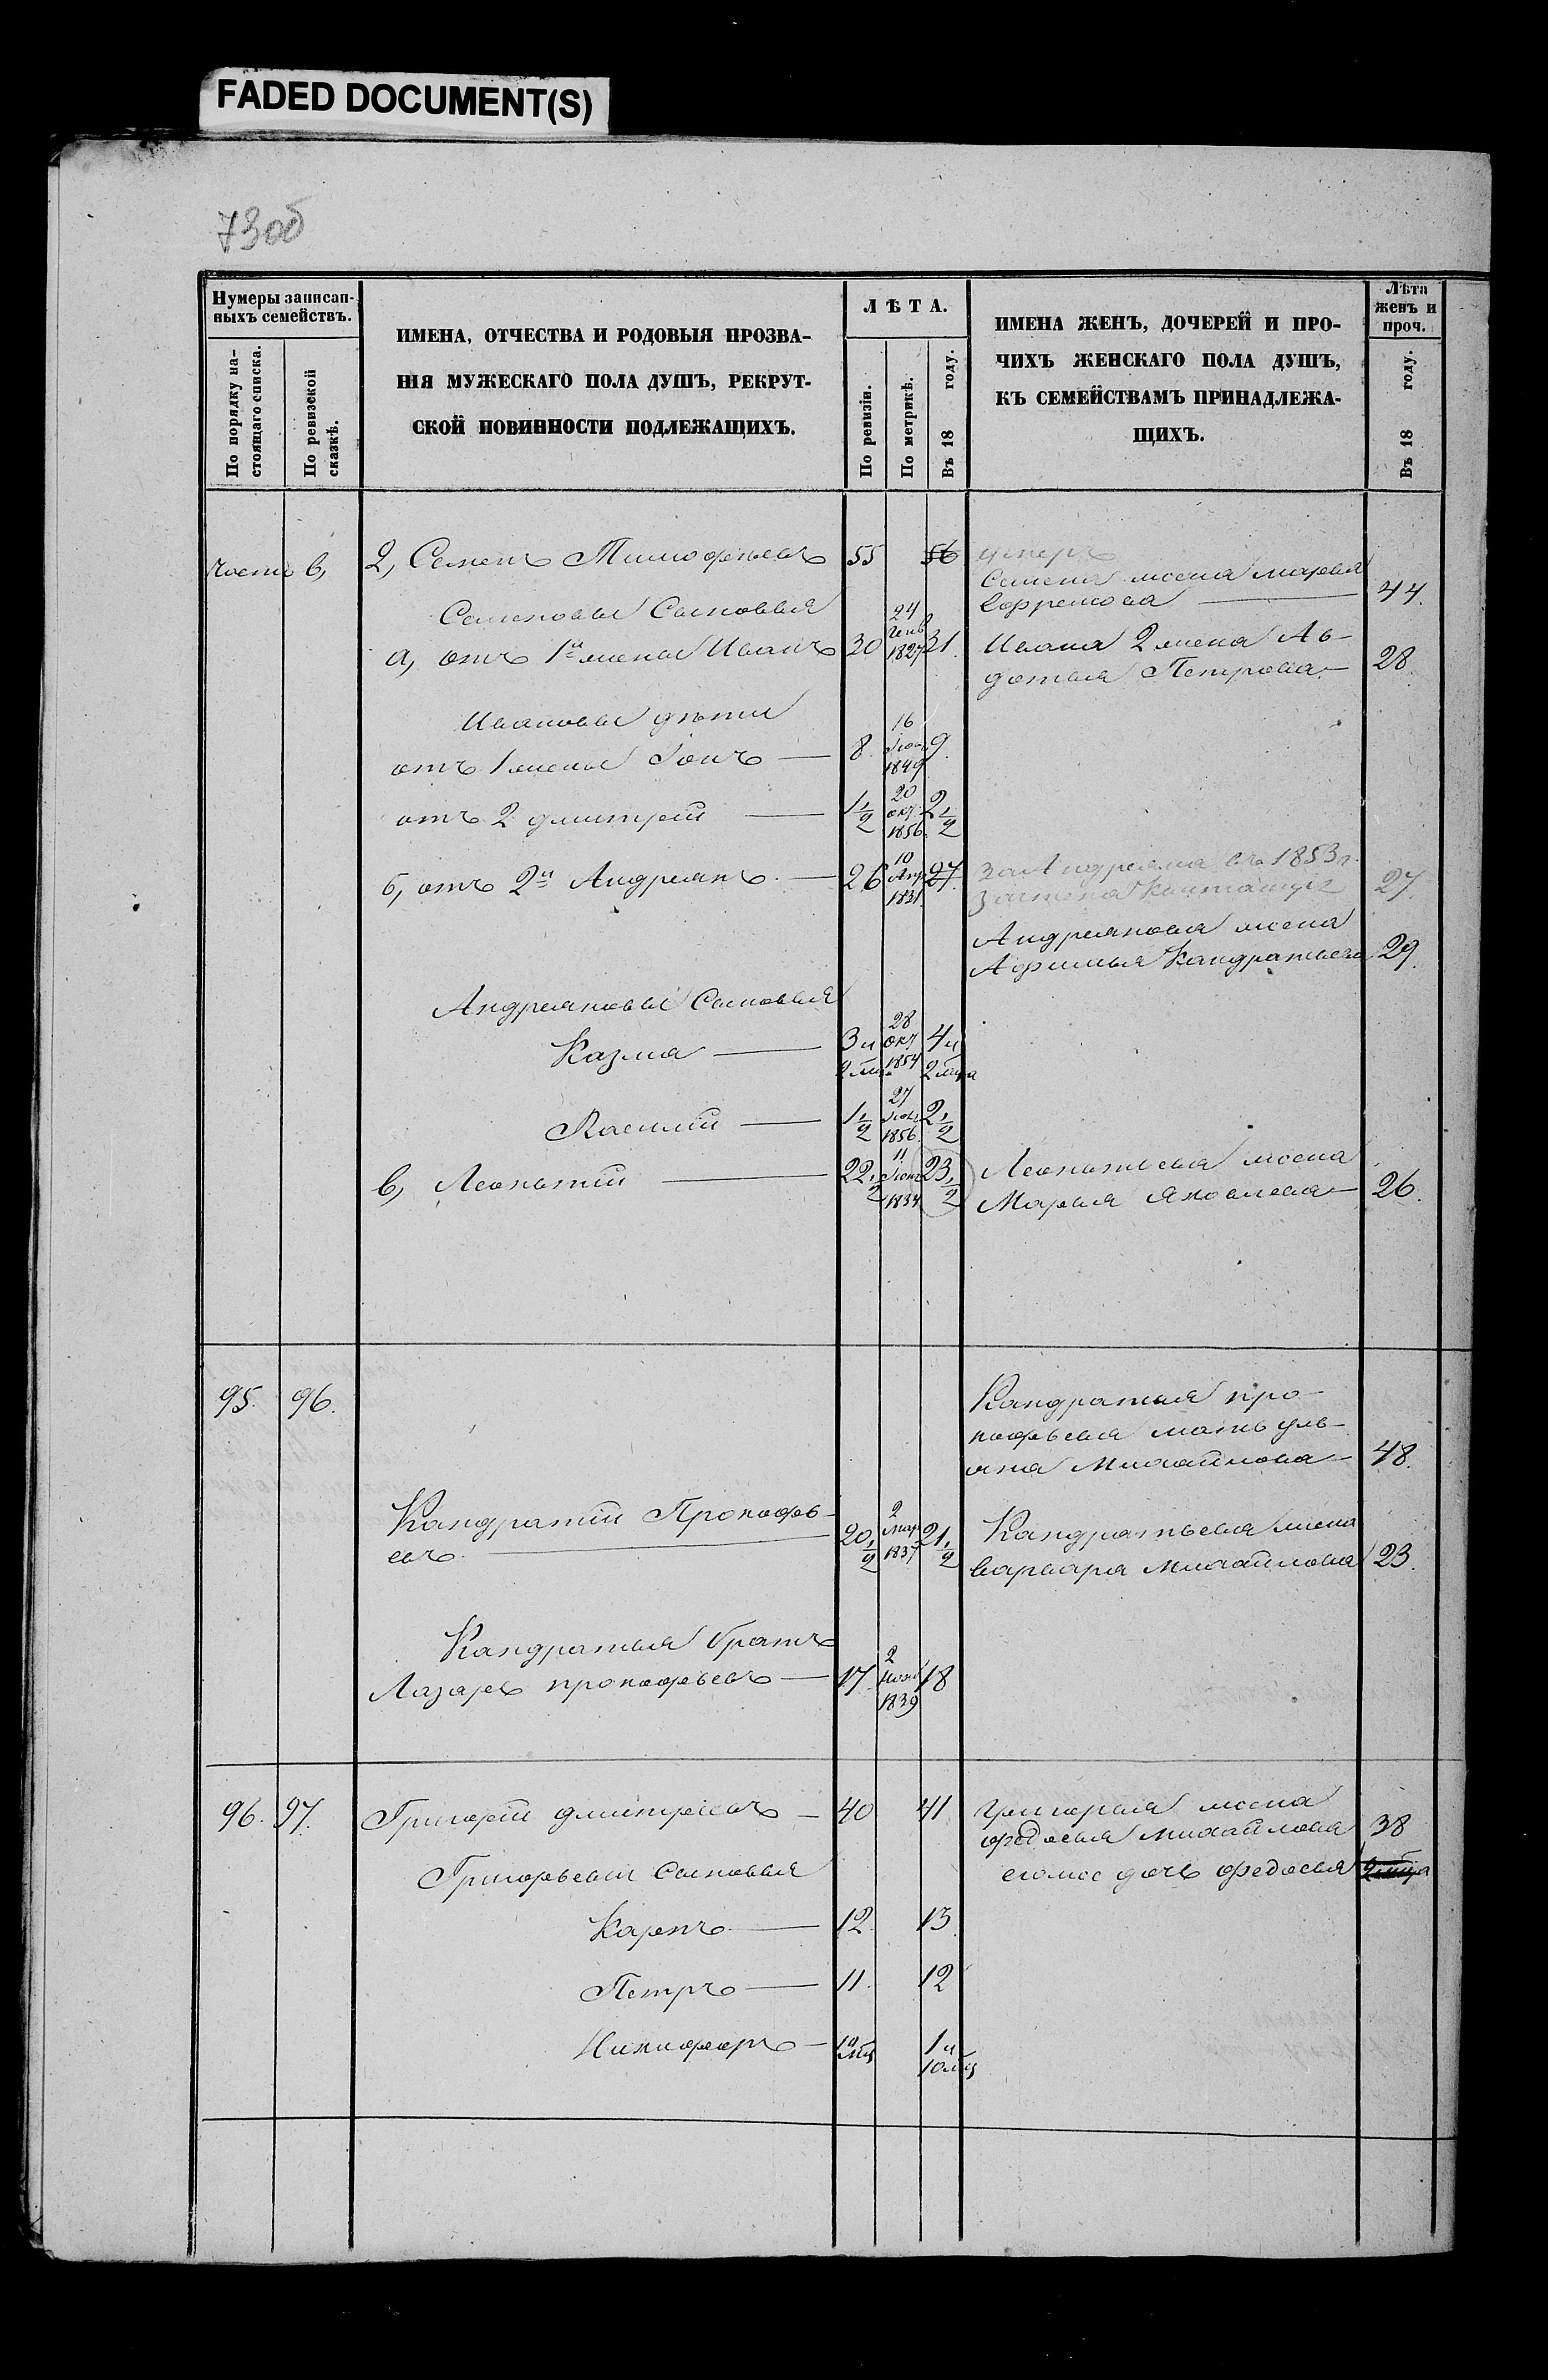 FADED DOCUMENT(S)
73об
Нумеры записан-
ныхъ семействъ.
По порядку на-
стоящаго списка.
По ревизской
сказкѣ.
ИМЕНА, ОТЧЕСТВА И РОДОВЫЯ ПРОЗВА-
НІЯ МУЖЕСКАГО ПОЛА ДУШЪ, РЕКРУТ-
СКОЙ ПОВИННОСТИ ПОДЛЕЖАЩИХЪ.
ЛѢТА.
По ревизіи.
По метрикѣ.
Въ 18 году.
ИМЕНА ЖЕНЪ, ДОЧЕРЕЙ И ПРО-
ЧИХЪ ЖЕНСКАГО ПОЛА ДУШЪ,
КЪ СЕМЕЙСТВАМЪ ПРИНАДЛЕЖА-
ЩИХЪ.
Лѣта
женъ и
проч.
Въ 18 году.
часть в,
2, Семенъ Тимофѣевъ 55 56 умеръ
Семена жена Марья
Ефремова 44.
Семеновы Сыновья
а, отъ 1й жены Иванъ 30 24 Генв 1827 31.
Ивана 2 жена Ав-
дотья Петрова 28.
Ивановы дѣти
отъ 1 жены Іонъ 8. 16 1849 9.
отъ 2 дмитрей 1 1/2 20 окт 1856. 2 1/2
б, отъ 2й Андреянъ 26 10 Апр 1831. 27.
за Андреяна въ 1853 г.
27.
Андреянова жена
Афимья Кандратьева 29.
Андреяновы Сыновья
Казма 3 и 2 мц 28 окт 1854 4 и 2 мца
Василій 1 1/2 27 1856 2 1/2
в, Леонтій 22 1/2 11 1834 23 1/2
Леонтьева жена
Марья Яковлева 26.
95. 96.
Кандратья про-
кофьева мать уль-
яна Михайлова 48.
Кандратій Прокофь-
евъ 20 1/2 2 мар 1837 21 1/2
Кандратьева жена
варвара Михайлова 23.
Кандратья братъ
Лазарь прокофьевъ 17. 2 Нояб 1839 18
96. 97. Григорій дмитріевъ 40 41
Григорья жена
федосья михайлова 38
Григорьевы Сыновья
егоже дочь федосья
Карпъ 12. 13.
Петръ 11. 12
Никифоръ 10 мц 1 и 10 мц